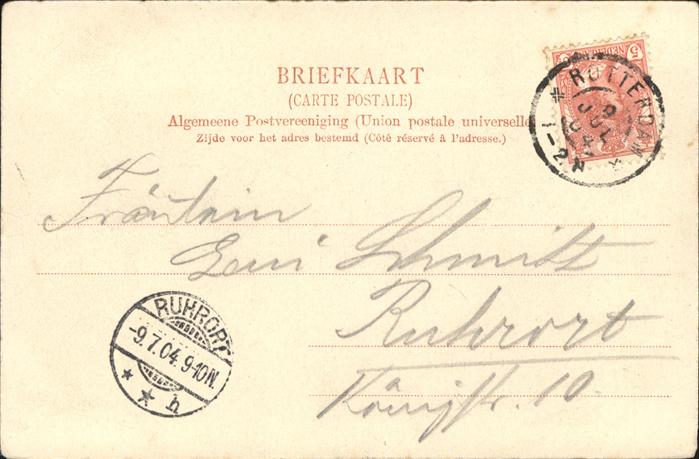 BRIEFKAART
(CARTE POSTALE)
Algemeene Postvereeniging (Union postale universelle
Zijde voor het adres bestemd (Côté réservé à l'adresse.)
5
ROTTERDAM
9 JUL 04
1-2 N
Fräulein
Schmitt
Ruhrort
Königstr. 10
RUHRORT
-9.7.04.9-10N.
* * h